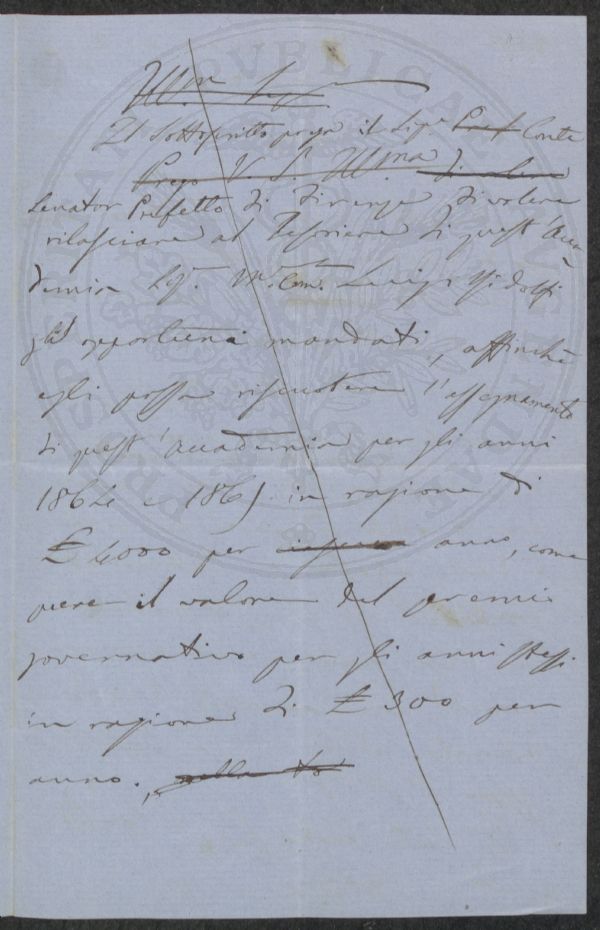 Ill.mo Sig.
Il Sottoscritto prega il Sig.r Pref Conte
Prego V. S. Ill.ma di volere
Senator Prefetto di Firenze di volere
rilasciare al Tesoriere di quest'Acca-
demia Sig. M. Com. Luigi Ridolfi
gli opportuni mandati, affinchè
egli possa riscuotere l'assegnamento
di quest'accademia per gli anni
1864 e 1865 in ragione di
£ 4000 per anno, come
pure il valore del premio
governativo per gli anni stessi
in ragione di £ 300 per
anno.,